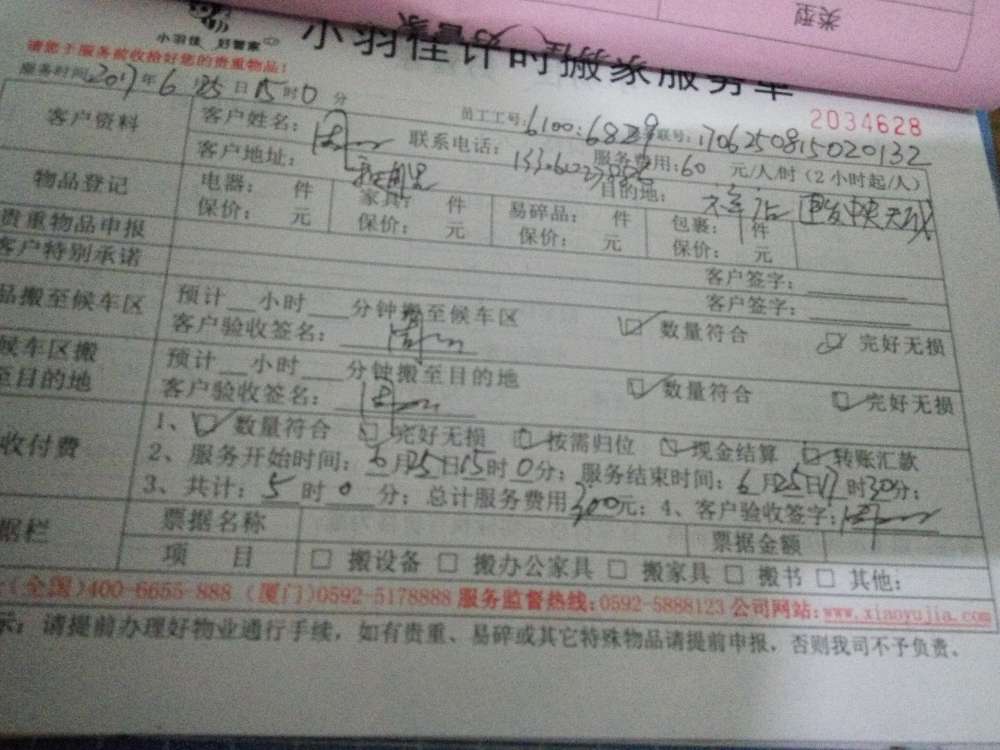 类型
小羽佳 好管家
小羽佳计时搬家服务单
请您于服务前收拾好您的贵重物品！
2034628
服务时间2017年6月25日15时0分
员工工号：6100：6829 联号：1706250815020132
客户资料 客户姓名： 联系电话： 服务费用：60 元/人/时（2小时起/人）
客户地址： 目的地：
物品登记 电器： 件 家具： 件 易碎品： 件 包裹： 件
保价： 元 保价： 元 保价： 元 保价： 元
贵重物品申报 客户签字：
客户特别承诺 客户签字：
品搬至候车区 预计 小时 分钟搬至候车区
客户验收签名： 数量符合 完好无损
候车区搬至目的地 预计 小时 分钟搬至目的地
客户验收签名： 数量符合 完好无损
收付费 1、 数量符合 完好无损 按需归位 现金结算 转账汇款
2、服务开始时间：6月25日15时0分；服务结束时间：6月25日17时30分；
3、共计：5时0分；总计服务费用300元；4、客户验收签字：
据栏 票据名称 票据金额
项 目 □ 搬设备 □ 搬办公家具 □ 搬家具 □ 搬书 □ 其他：
(全国)400-6655-888 (厦门)0592-5178888 服务监督热线：0592-5888123 公司网站：www.xiaoyujia.com
示：请提前办理好物业通行手续，如有贵重、易碎或其它特殊物品请提前申报，否则我司不予负责。